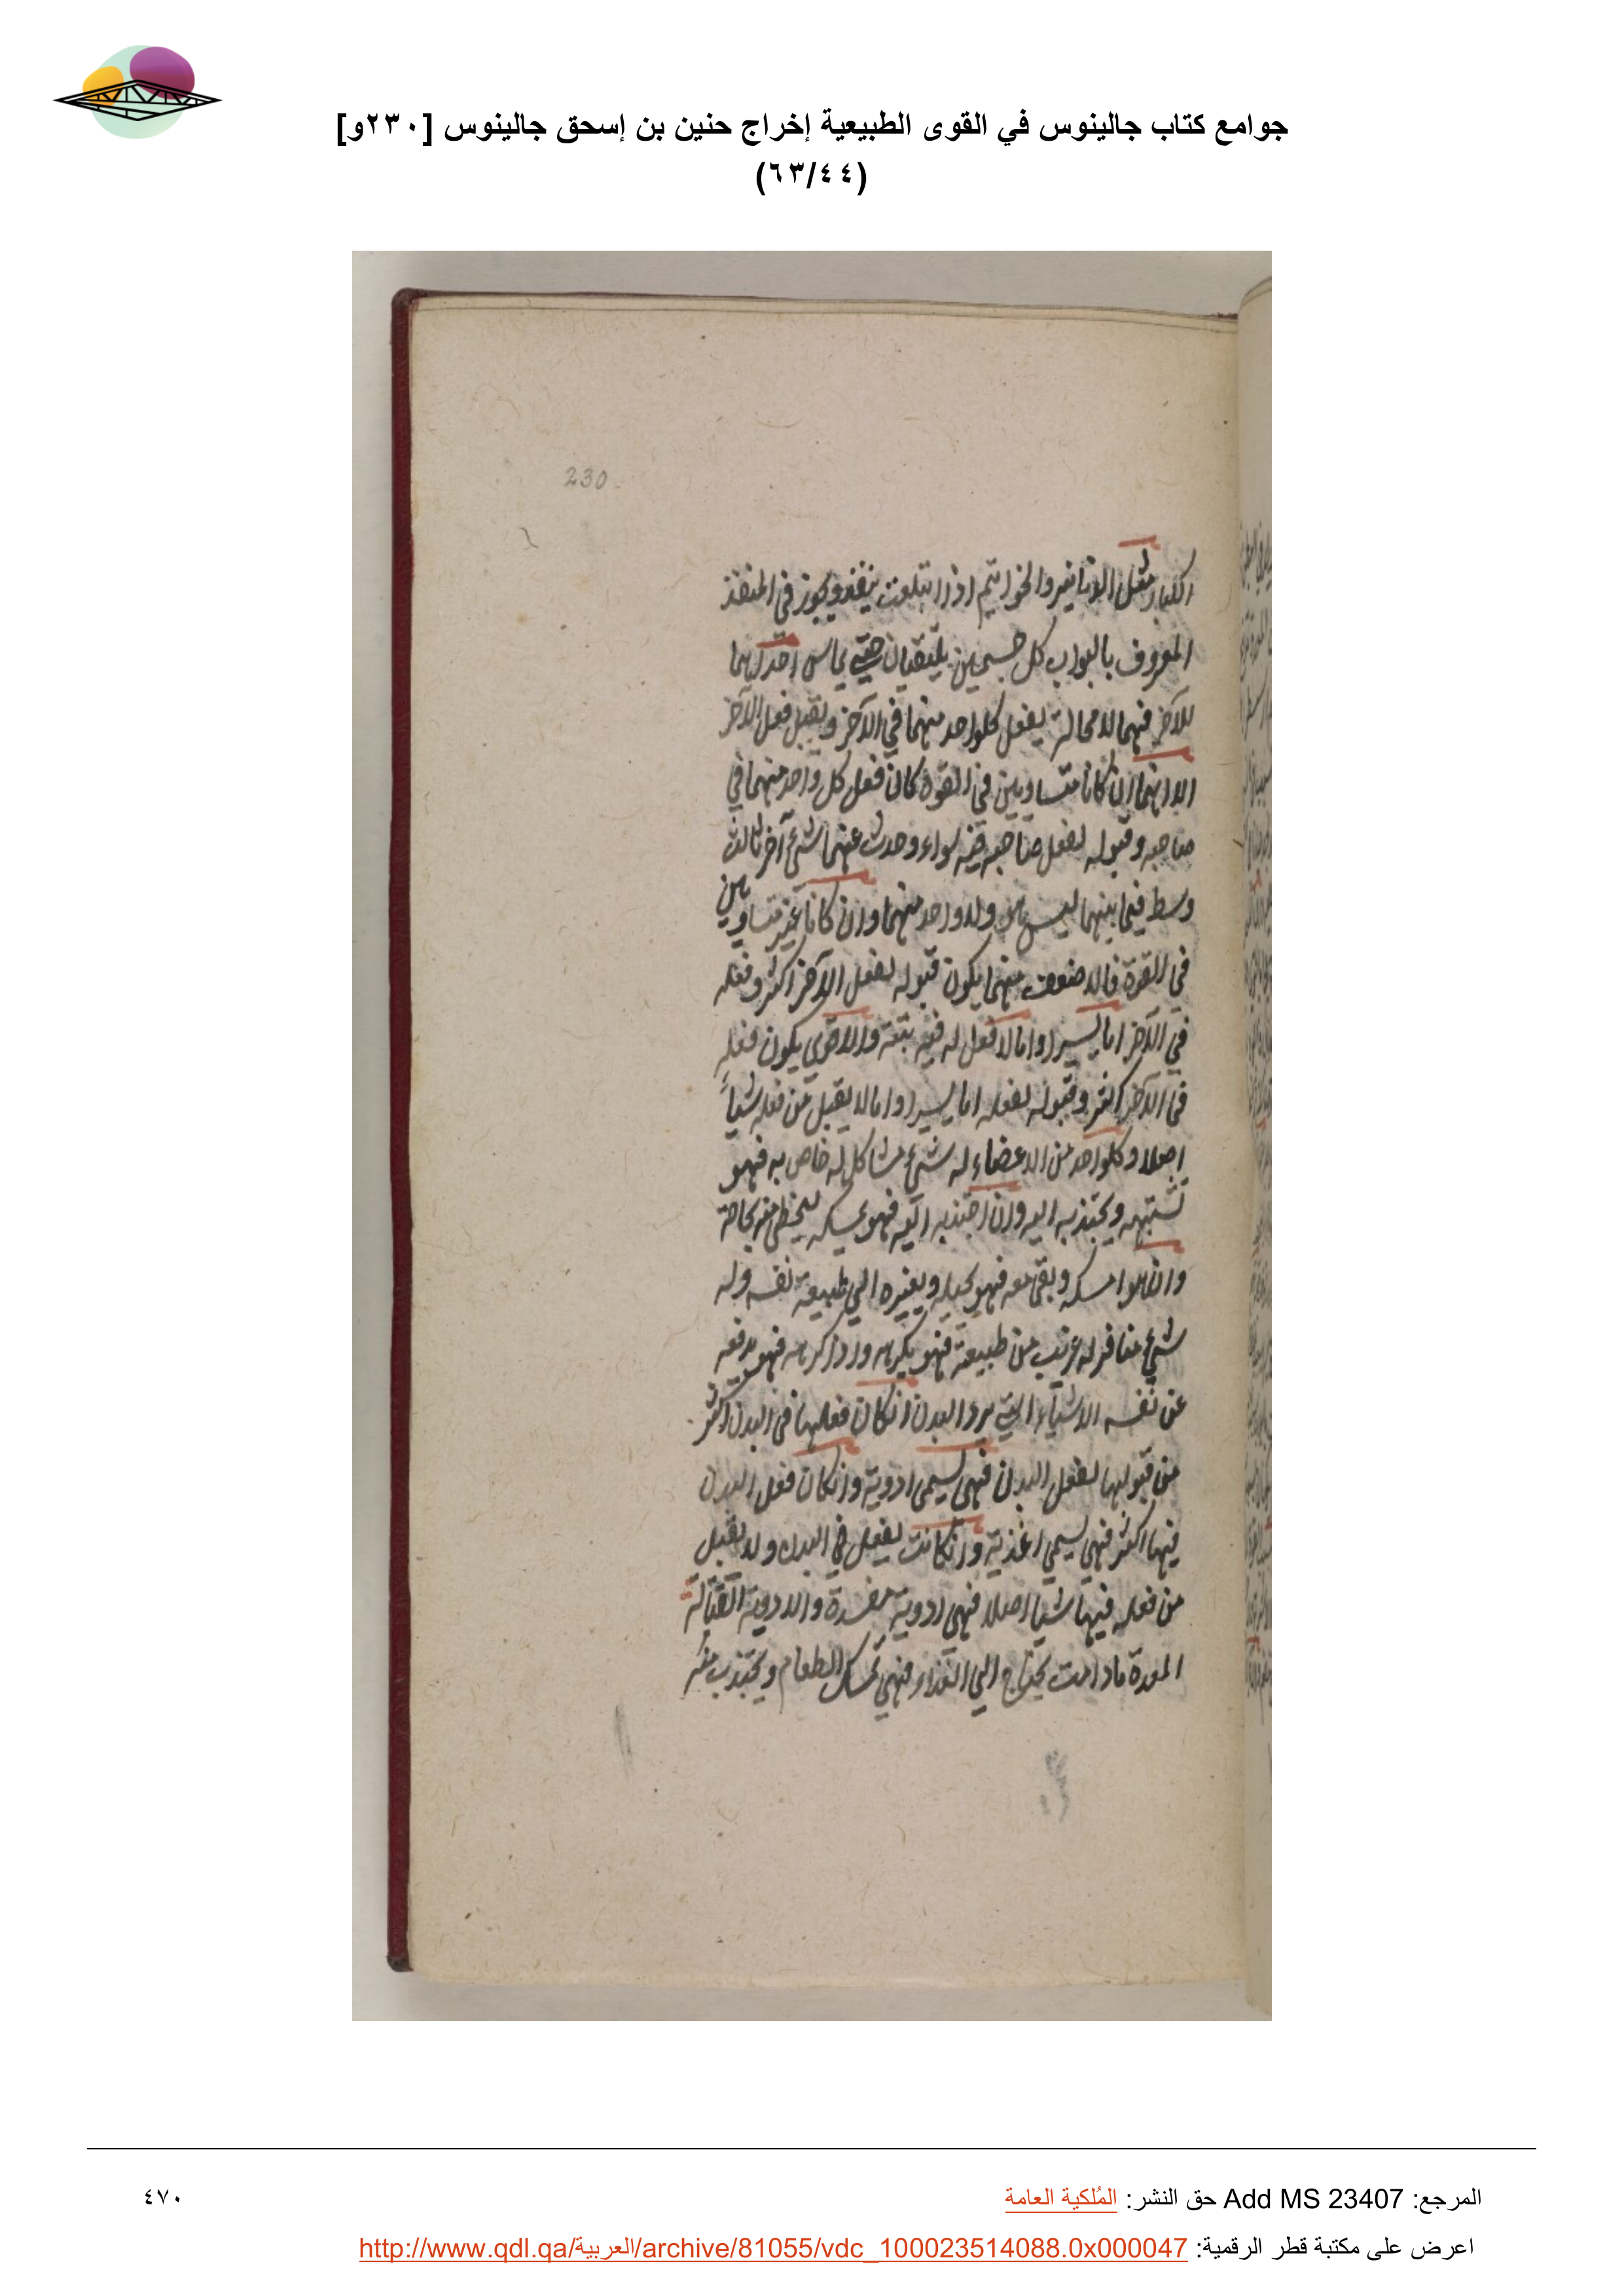 جوامع كتاب جالينوس في القوى الطبيعية إخراج حنين بن إسحق جالينوس [٢٣٠و]
(٦٣/٤٤)
230
الكبار مثل الدنانير والخواتيم اذا ابتلعت ينفذ ويجوز في المنفذ
المعروف بالبواب كل جسمين يلتقيان حتى يماس احدايهما
للآخر فيهما لا محالة يفعل كلواحد منهما في الآخر ويقبل فعل الآخر
الا انهما ان كانا متساويين في القوة كان فعل كل واحد منهما في
صاحبه وقبوله لفعل صاحبه فيه سواء وحدث عنهما شئ آخر ثالث
وسط فيما بينهما ليس هو ولا واحد منهما وان كانا غير متساويين
في القوة فالاضعف منهما يكون قبوله لفعل الآخر اكثر وفعله
في الآخر اما يسيرا واما لا فعل له فيه بتة والاقوى يكون فعله
في الآخر اكثر وقبوله لفعله اما يسيرا واما لا يقبل من فعله شيأً
اصلا وكلواحد من الاعضاء له شئ مشاكل له خاص به فهو
تشتهيه ويجتذبه اليه وان اجتذبه اليه فهو يمسكه ليحظى منه بحاجة
وان هو امسكه وبقى معه فهو يحيله ويغيره الي طبيعة نفسه وله
شئ منافر له غريب من طبيعته فهو يكرهه واذ كرهه فهو يدفعه
عن نفسه الاشياء التي يرد البدن انكان فعلها في البدن اكثر
من قبولها لفعل البدن فهي يسمى ادوية وانكان فعل البدن
فيها اكثر فهي يسمي اغذية وانكانت يفعل في البدن ولا يقبل
من فعله فيها شيأ اصلا فهي ادوية مفسدة والادوية القتالة
المعدة ما دامت يحتاج الي الغذاء فهي تمسك الطعام ويجتذب منه
المرجع: Add MS 23407 حق النشر: المُلكية العامة
٤٧٠
اعرض على مكتبة قطر الرقمية: http://www.qdl.qa/العربية/archive/81055/vdc_100023514088.0x000047